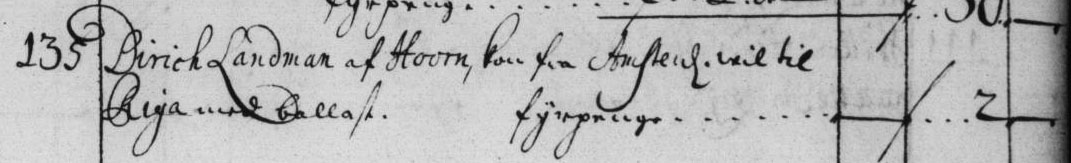 fyrpenge
30
135 Dirich Landman af Hoorn, kom fra Amsterd. vil til
Riga med Ballast. fyrpenge 2